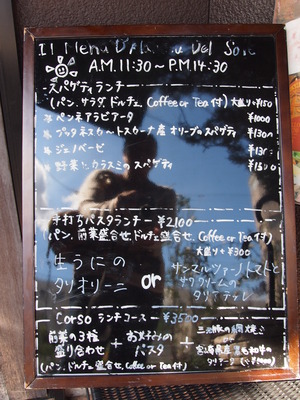 Il Menu D' Del Sole
A.M. 11:30 ～ P.M. 14:30
スパゲティランチ
(パン、サラダ、ドルチェ、Coffee or Tea付) 大盛り+¥150
ペンネアラビアータ ¥1000
プッタネスカ～トスカーナ産 オリーブのスパゲティ ¥1300
ジェノベーゼ
野菜とカラスミのスパゲティ ¥1500
手打ちパスタランチ ¥2100
(パン、前菜盛合せ、ドルチェ盛合せ、Coffee or Tea付)
大盛り+¥300
生うにの
タリオリーニ
or
サンマルツァーノトマトと
サワクリームの
タリアテッレ
Corso ランチコース ¥3500
前菜の3種
盛り合わせ
+
お好みの
パスタ
+
三元豚の網焼き
or
宮崎県産黒毛和牛の
タリアータ
(パン、ドルチェ盛合せ、Coffee or Tea付)